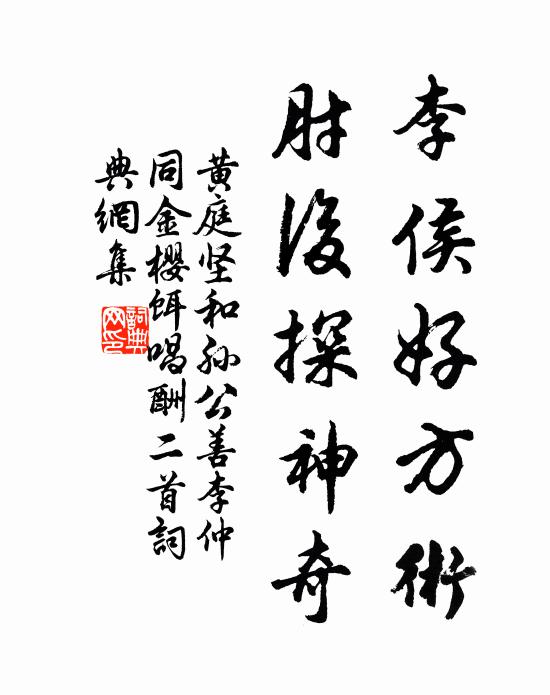 李侯好方術
肘後探神奇
黄庭坚和孙公善李仲
同金櫻餌唱酬二首詞
典網集
詞典
网印